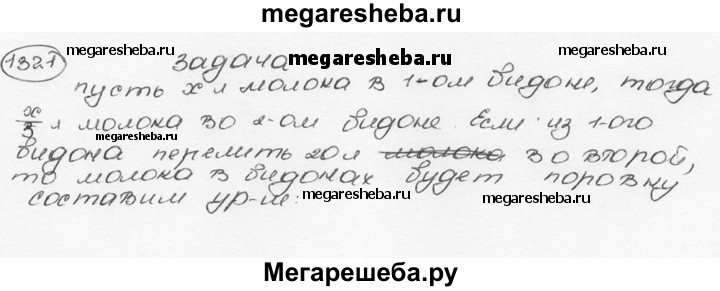 megaresheba.ru
1321 задача
megaresheba.ru megaresheba.ru
пусть x л молока в 1-ом бидоне, тогда
megaresheba.ru
x/3 л молока во 2-ом бидоне. Если из 1-ого
megaresheba.ru megaresheba.ru
бидона перелить 20 л молока во второй,
то молока в бидонах будет поровну
megaresheba.ru megaresheba.ru megaresheba.ru
составим ур-е:
Мегарешеба.ру